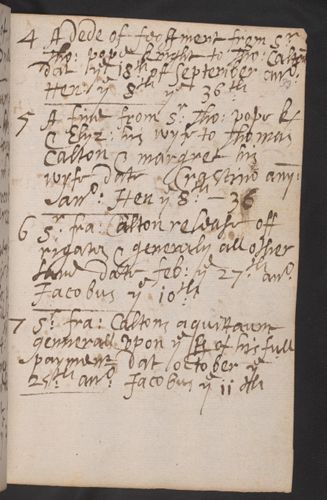 4 A Dede of feofment from Sr
Tho: pope knight to Tho: Calton
dat ye 18th of September ano.
Henry 8th ye 36th
5 A fine from Sr Tho: pope k
& Eliz: his wyfe to Thomas
Calton & margret his
wyfe date Crastino any:
Jano. Hen ye 8: - 36
6 Sr. fra: Calton release off
rigate & generaly all other
land date feb: ye 27th ano.
Jacobus ye 10th
7 Sr. fra: Caltons aquittanc
gennerall Vpon ye of his full
payment dat october ye
25th ano. Jacobus ye 11th